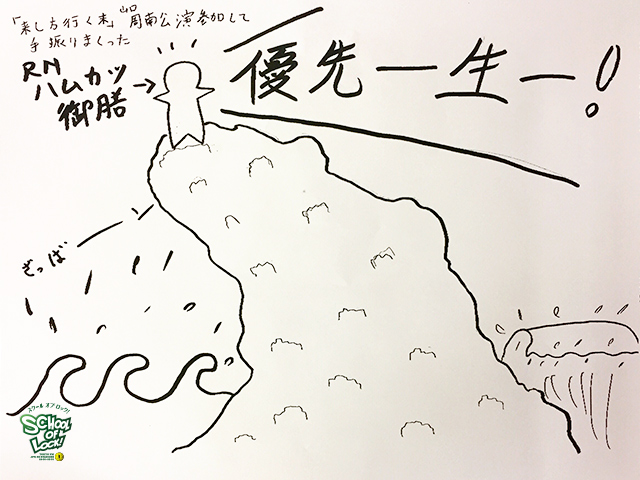 「来し方行く末」山口周南公演参加して
手振りまくった
RN
ハムカツ
御膳
→
優先一生ー!
ざっぱ
ーン
スクール オブ ロック!
SCHOOL
OF
LOCK!